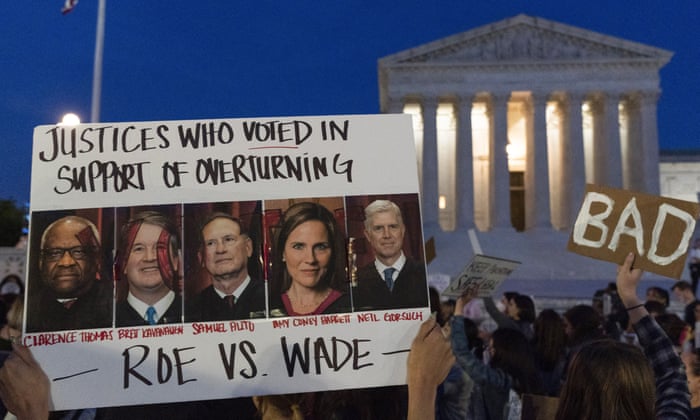 JUSTICES WHO VOTED IN
SUPPORT OF OVERTURNING
CLARENCE THOMAS BRET KAVANAUGH SAMUEL ALITO AMY CONEY BARRETT NEIL GORSUCH
— ROE VS. WADE —
BAD